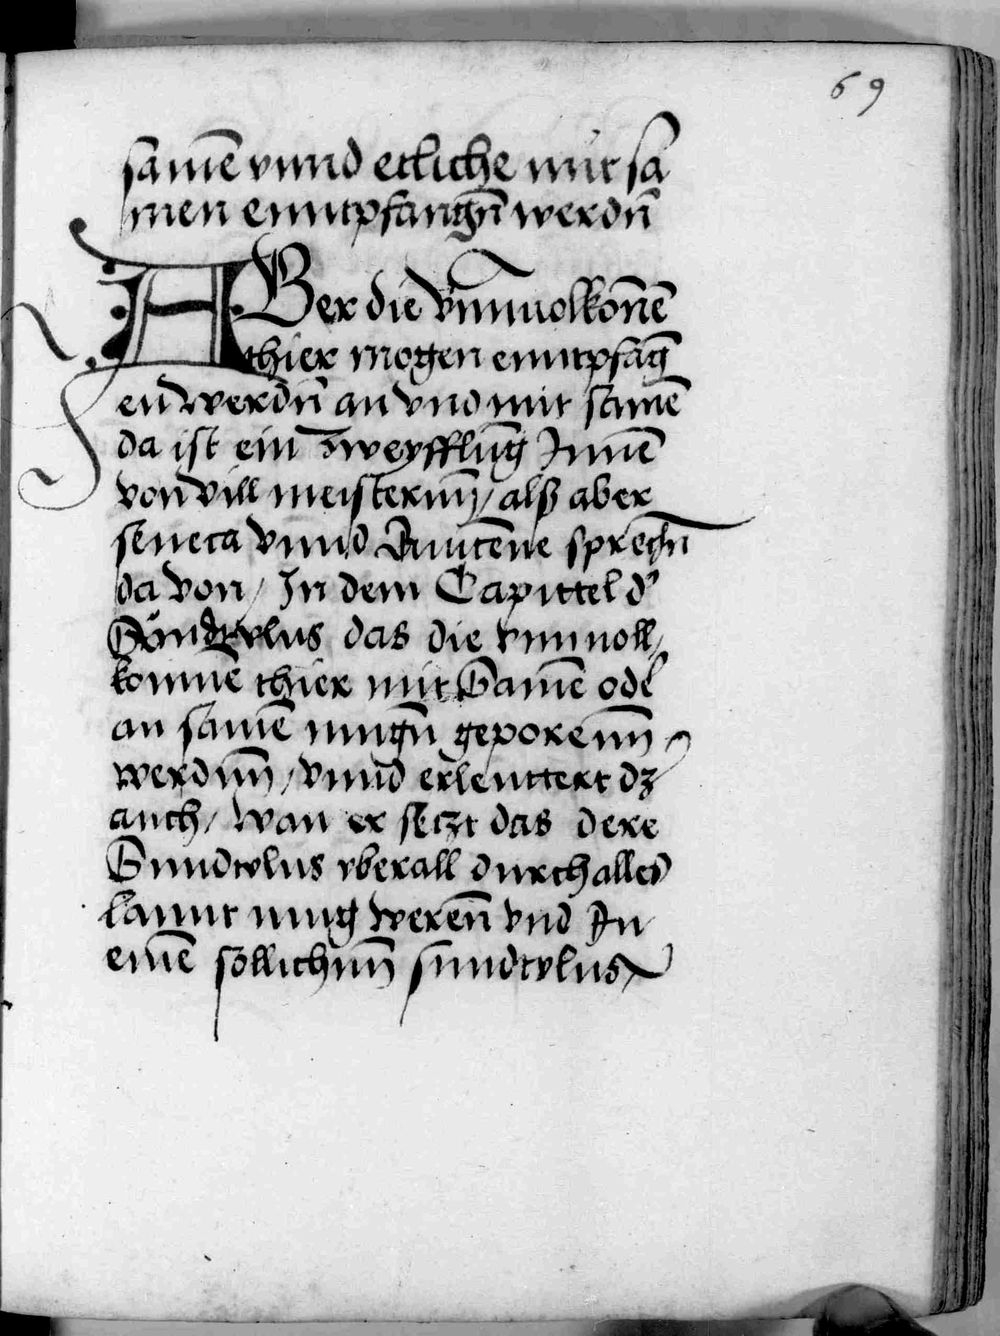 69
samē vnnd etliche mit sa
men enntpfangn̄ werdn̄
ABer die vnnuolkōnē
thier mogen enntpfāg
en werdn̄ an vnd mit samē
da ist ein zweyfflūg Innē
von vill meisterīn / alß aber
seneca vnnd Auicēne sprechn̄
da von / In dem Capittel d'
Sündtvlus das die vnnuoll /
komnē thier mit Samē oder
an samē mugn̄ geporenn̄
werdnn̄ / vnnd erlenttert dz
auch / wan er seczt das dere
Sinndtvlus vberall durch alles
lannt mug werēn vnd In
einē sollichnn̄ sinndtvlus